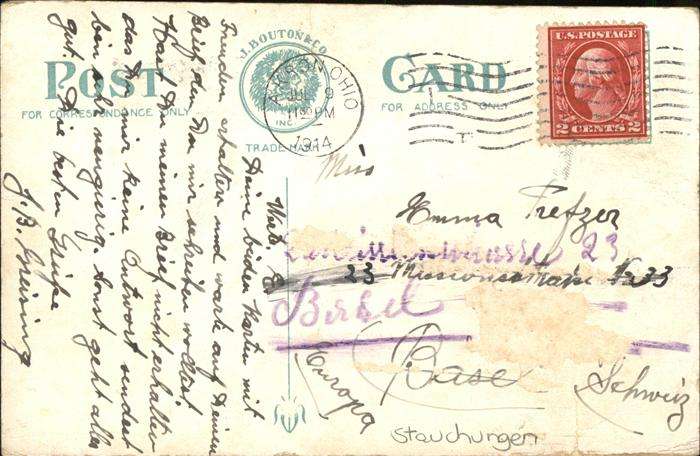 POST CARD
FOR CORRESPONDENCE ONLY
FOR ADDRESS ONLY
J. BOUTON & CO.
INC.
TRADE-MARK
AKRON OHIO
JUL 9
11 30 PM
1914
U.S. POSTAGE
2 CENTS 2
Deine beiden Karten mit
Freuden erhalten und warte auf Deinen
Brief, den Du mir schreiben wolltest
Hast Du meinen Brief nicht erhalten
das Du mir keine Antwort sendest
bin so neugierig. Sonst geht alles
gut. Die besten Grüße
Miss
Emma Trefzer
23
23 Missionsstraße No 33
Basel
Basel
Schweiz
Europa
Stauchungen